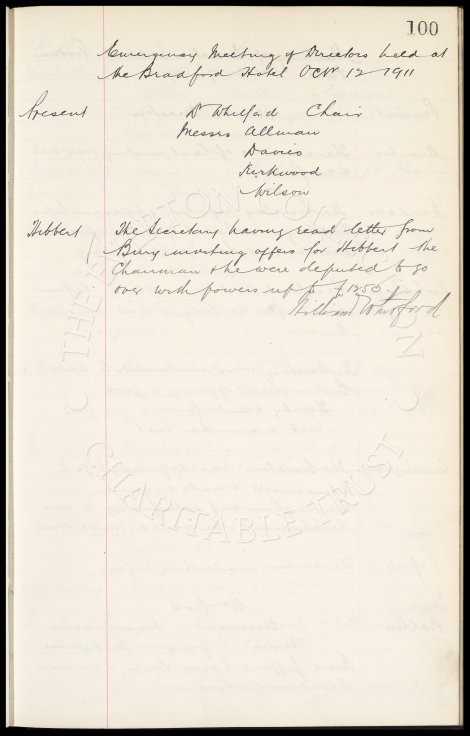 100
Emergency Meeting of Directors held at
the Bradford Hotel Octr 12 1911
Present Dr Whitfad Chair
Messrs Allman
Davies
Kirkwood
Wilson
Hibbert / The Secretary having read letter from
Bury inviting offers for Hibbert the
Chairman & he were deputed to go
over with powers up to £1250.
William Whitford
CHARITABLE TRUST